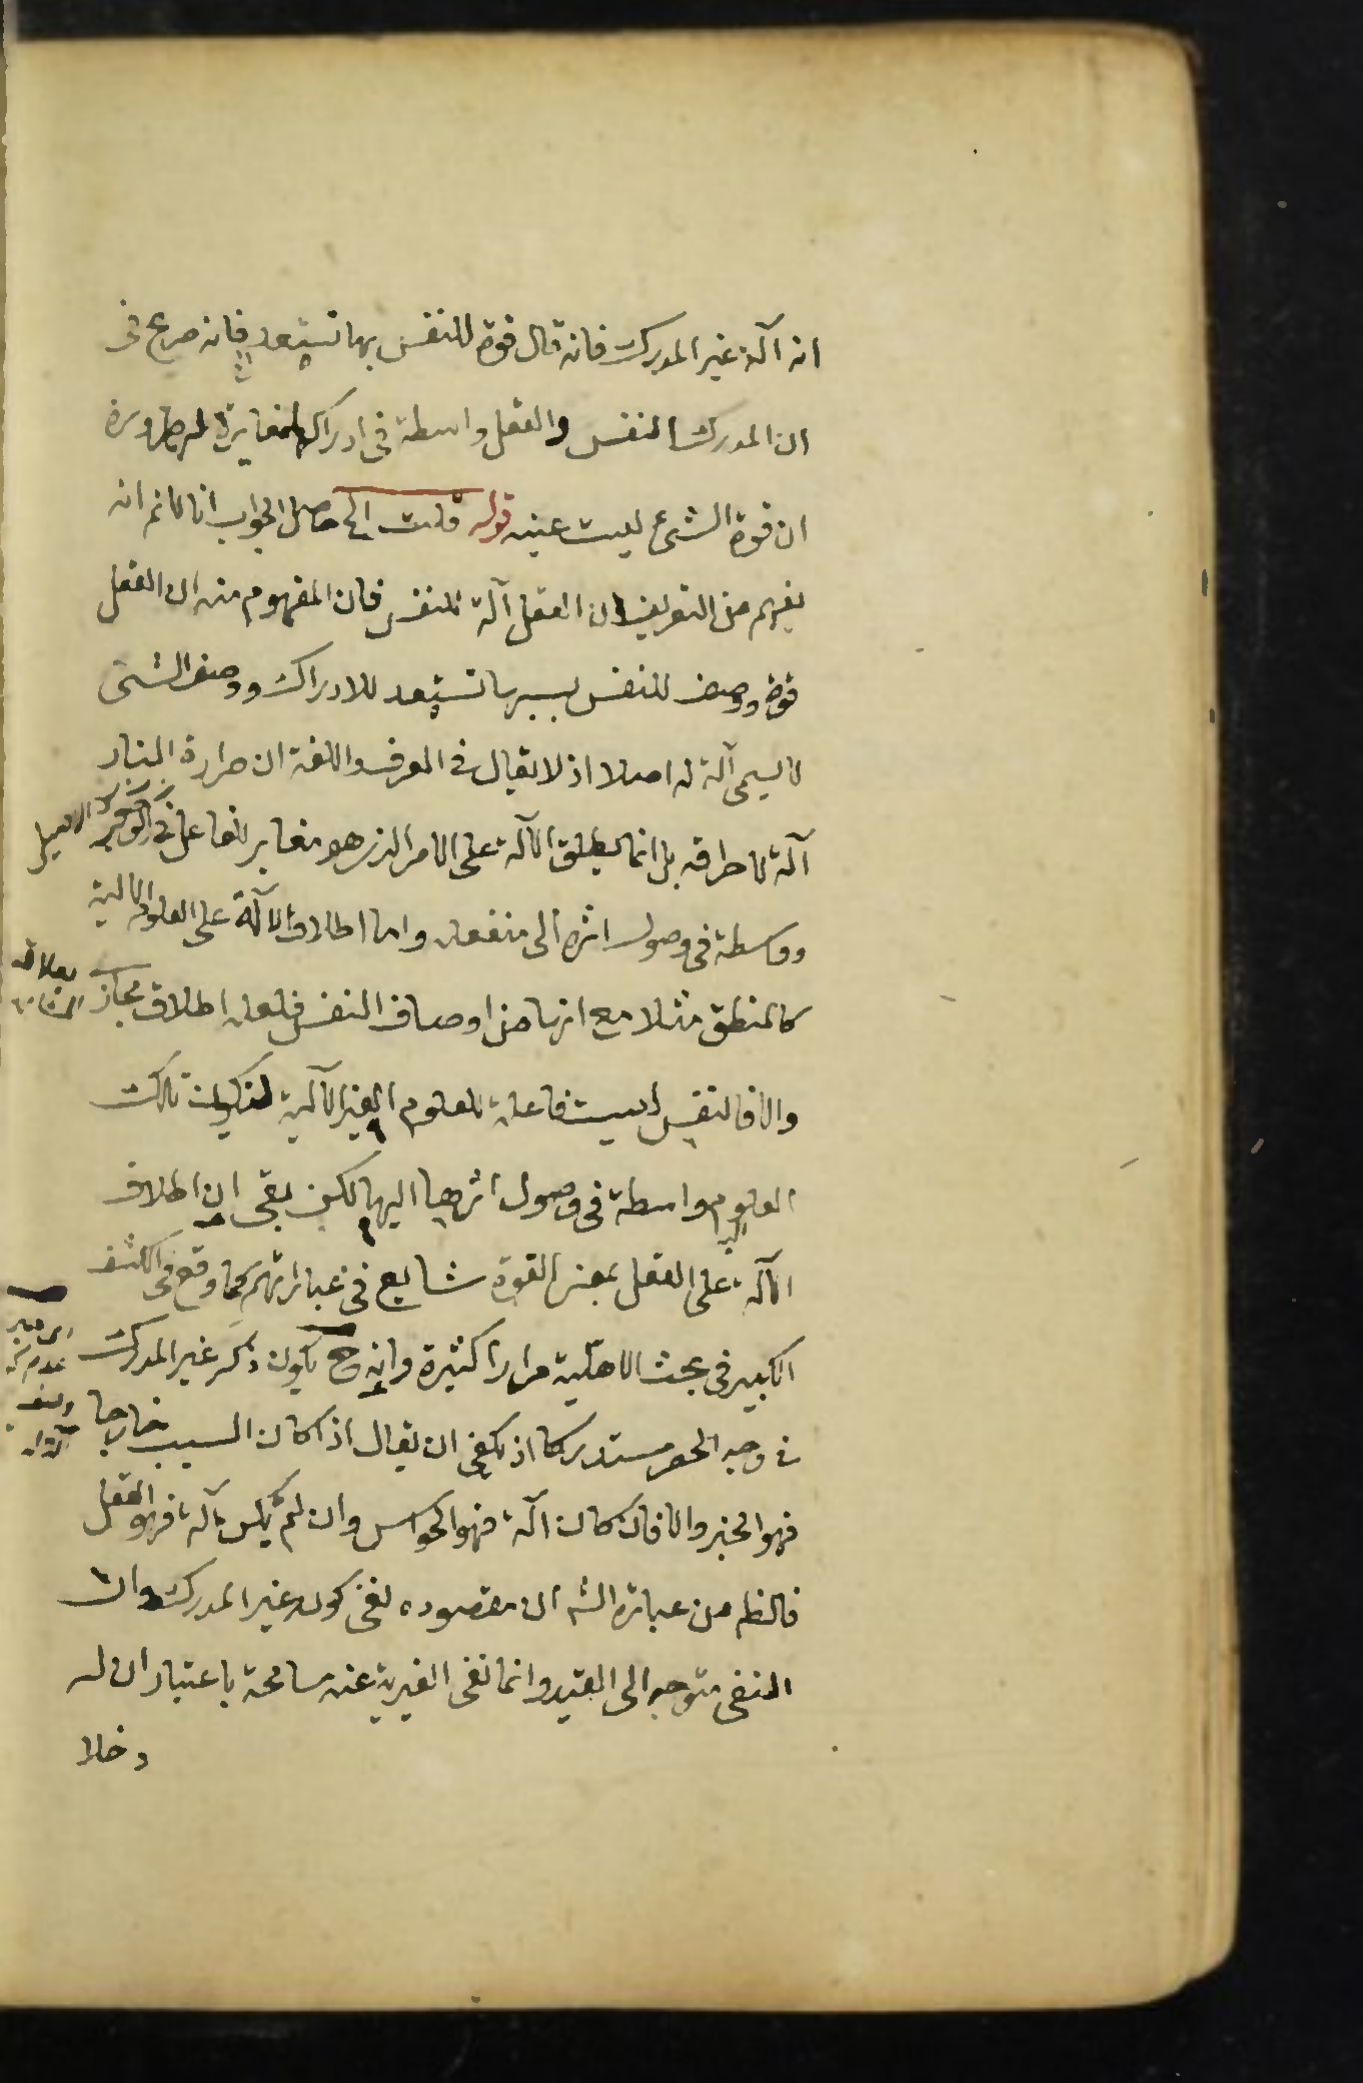 انه آلة غير المدرك فانه قال قوة للنفس بها تستعد فانه صرح فى
ان المدرك النفس والعقل واسطة فى ادراكها لمغايرة له ضرورة
ان قوة الشئ ليست عينه قوله قلت الخ حاصل الجواب انا لانم انه
يفهم من التعريف ان العقل آلة للنفس فان المفهوم منه ان العقل
قوة ووصف للنفس بسببها تستعد للادراك ووصف الشئ
لا يسمى آلة له اصلا اذ لا يقال فى العرف واللغة ان حرارة النار
آلة لاحراقه بل انما يطلق الآلة على الامر الذى هو مغاير للفاعل فى الوجود
وواسطة فى وصول اثره الى منفعله واما اطلاق الآلة على العلوم الآلية
كالمنطق مثلا مع انها من اوصاف النفس فلعله اطلاق مجاز
والا فالنفس ليست فاعلة للعلوم الغير الآلية لتكون تلك
العلوم واسطة فى وصول اثرها اليها لكن بقى ان اطلاق
الآلة على العقل بمعنى القوة شايع فى عباراتهم كما وقع فى الكشف
الكبير فى بحث الاهلية مرارا كثيرة وانه ح يكون ذكر غير المدرك
فى وجه الحصر مستدركا اذ يكفى ان يقال اذا كان السبب خارجا
فهو الخبر والا فان كان آلة فهو الحواس وان لم يكن آلة فهو العقل
فالظم من عبارة الشه ان مقصوده نفى كونه غير المدرك وان
النفى متوجه الى القيد وانما نفى الغيرية عنه مسامحة باعتبار ان له
دخلا